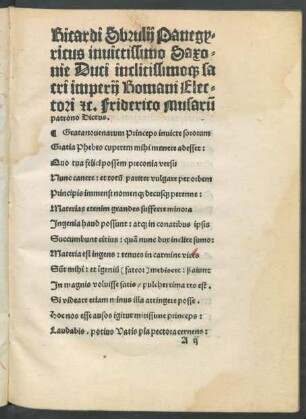 Ricardi Sbrulij Panegy⸗
ricus inuictissimo Saxo⸗
nie Duci inclitissimoqꝫ sa
cri imperij Romani Elec⸗
tori ⁊c. Friderico Musarū
patrono Dictus.
¶ Grata nouenarum Princeps inuicte sororum
Gratia Phebeo cuperem mihi menete adesset:
Quo tua felici possem preconia versu
Nunc canere: et toto pariter vulgare per orbem
Principis immensi nomenqꝫ decusqꝫ perenne:
Materias etenim grandes sufferre minora
Ingenia haud possunt: atqꝫ in conatibus ipsis
Succumbunt citius: quā nunc dux inclite sumo:
Materia est ingens: tenues in carmine vires
Sūt mihi: et igeniū (fateor) mediocre: ꝫ aiunt:
In magnis voluisse satis / pulcherrima res est.
Si videare etiam minus illa attingere posse.
Hoc nos esse ausos igitur mitissime princeps:
Laudabis, potius Vatis pia pectora cernens:
A ij